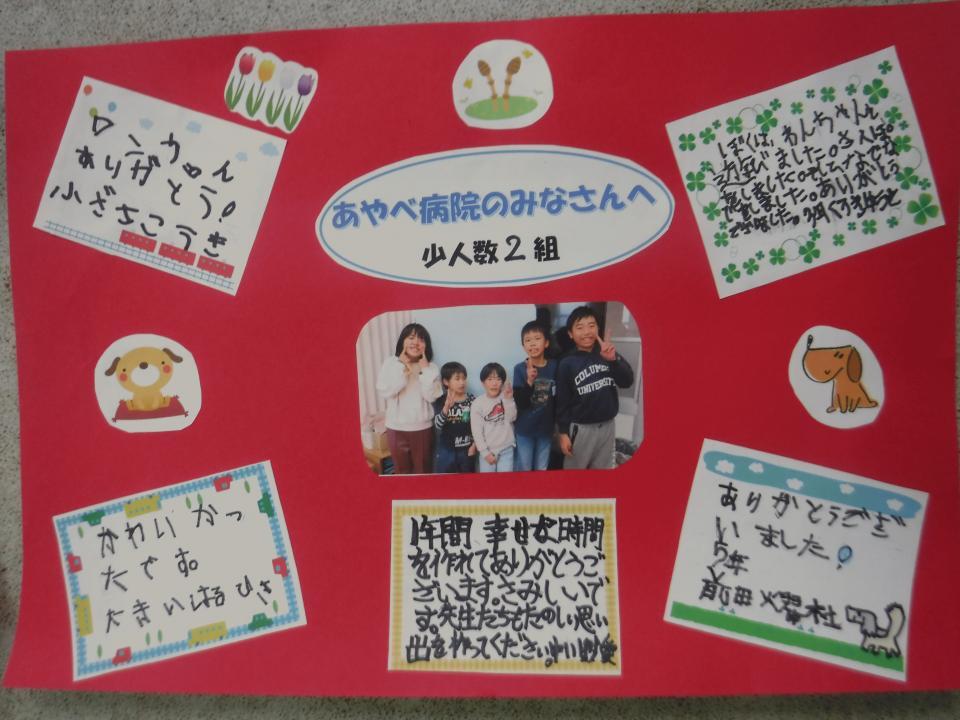 あやべ病院のみなさんへ
少人数2組
ロンちゃん
ありがとう!
小ざさこうき
ぼくは、わんちゃんと
遊びました。さんぽ
もしました。そしてなでな
でしました。ありがとう
ございました。
COLUMB
UNIVERSITY
かわいかっ
たです。
大きいはるひさ
1年間 幸せな時間
を作れてありがとうご
ざいます。さみしいで
す。先生たちもたのしい思い
出を作ってください。
ありがとうござ
いました!
5年
前田